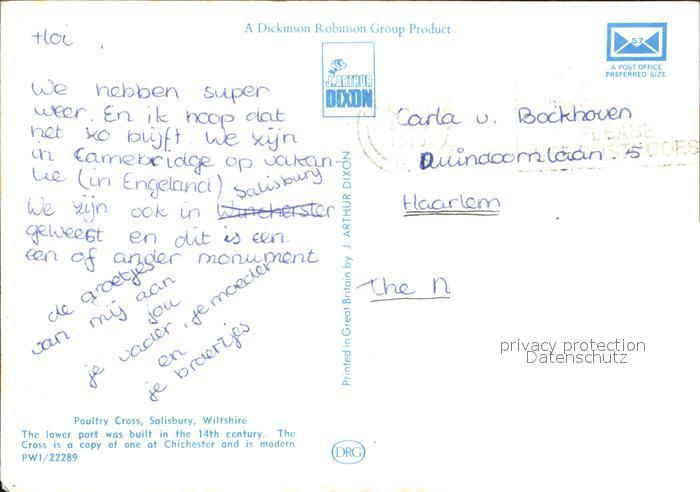 A Dickinson Robinson Group Product
Hoi
We hebben super
weer. En ik hoop dat
het zo blijft. We zijn
in Camebridge op vakan-
tie (in Engeland)
Salisbury
We zijn ook in Wincherster
geweest en dit is een
een of ander monument
de groetjes
van mij aan
jou
je vader, je moeder
en
je broertjes
Poultry Cross, Salisbury, Wiltshire
The lower part was built in the 14th century. The
Cross is a copy of one at Chichester and is modern
PW1/22289
J. ARTHUR
DIXON
Printed in Great Britain by J. ARTHUR DIXON
DRG
57
A POST OFFICE
PREFERRED SIZE
PLEASE
POSTCODES
Carla v. Bockhoven
Duindoornlaan. 5.
Haarlem
The N
privacy protection
Datenschutz